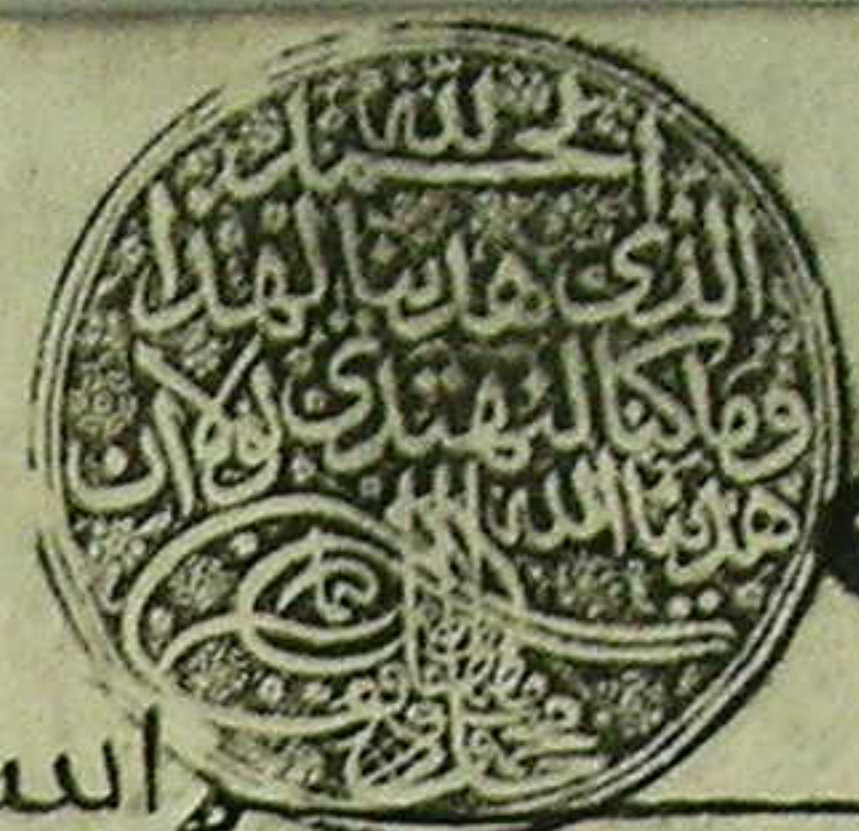 الحمد لله
الذى هدينا لهذا
وما كنا لنهتدى لولا ان
هدينا الله
الله